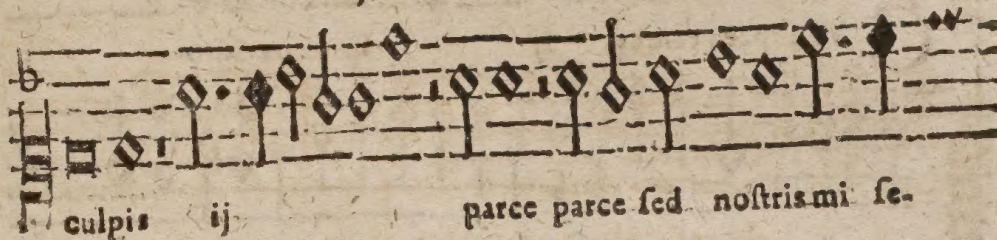 culpis ij parce parce ſed noſtris mi ſe-